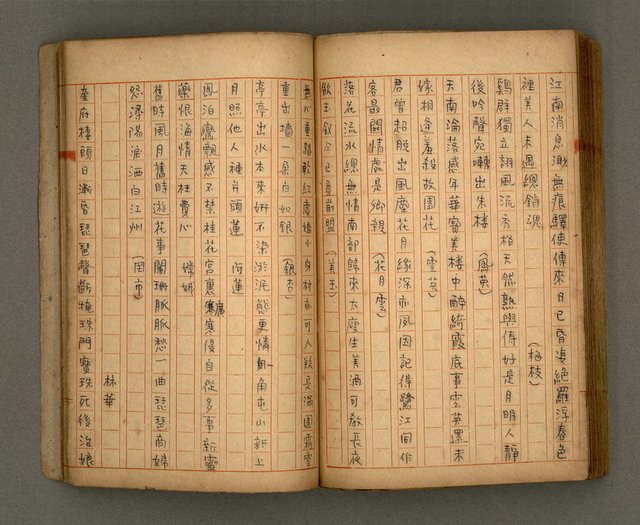 江南消息渺無痕驛使傳來日已昏凄絕羅浮春色
裡美人未遇總銷魂　　(梅枝)
鷄群獨立詡風流秀格天然熟與儔好是月明人靜
後吟聲宛囀出朱樓　　(鳳英)
天南淪落感年華寶美樓中醉綺霞底事雲英還未
嫁相逢羞殺故園花　　(雲英)
君曾超脫出風塵花月緣深亦夙因記得鷺江同作
客最關情處是鄉親　　(花月雲)
落花流水總無情南部歸來太瘦生美酒可教長夜
飲玉釵今已負前盟　　(美玉)
無心重踏軟紅塵嬌小身材亦可人疑是滿園霜雪
重出墻一朵白如銀　　(銀杏)
亭亭出水本來妍不染淤泥態更憐一角屯山新上
月照他人種并頭蓮　　阿蓮
鳳泊鸞飄感不禁桂花宮裏寒優自從多事新靈
藥恨海情天枉費心　　嫦娥
舊時風月舊時遊花事闌珊脈脈愁一曲琵琶商婦
怨潯陽淚洒白江州　　(罔市)
林華
奎府樓頭日漸昏琵琶聲斷掩珠門寶珠死後治娘